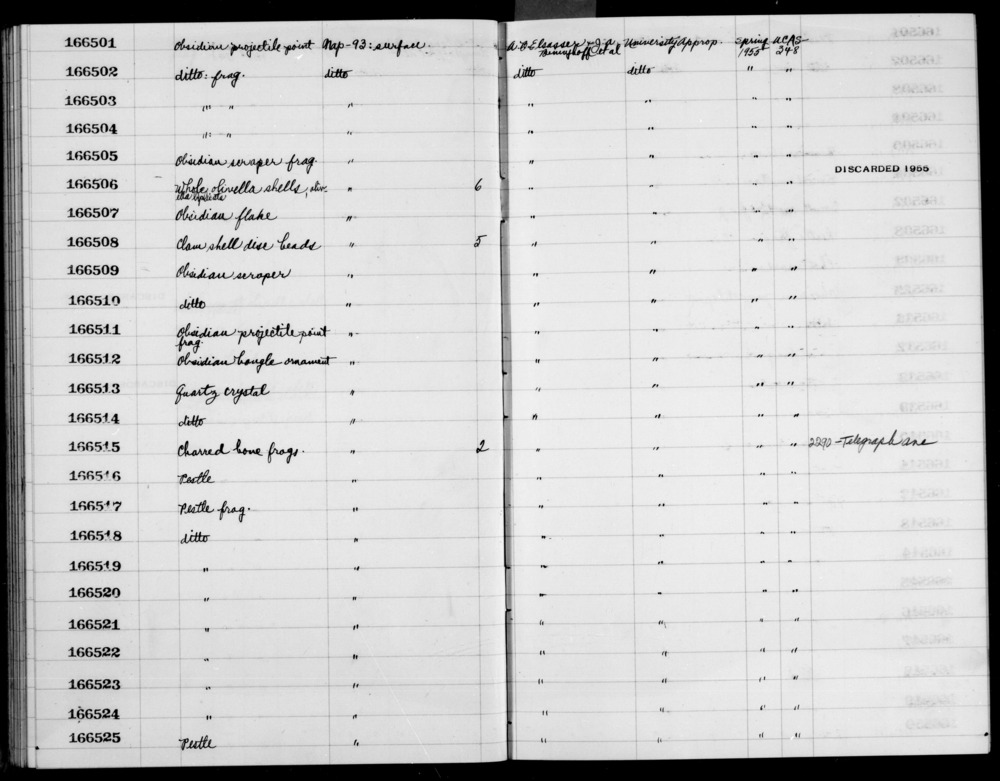 166501 Obsidian projectile point Nap-93: surface. A.B. Elsasser & J.A. Bennyhoff et al University Approp. Spring 1955 ACAS 248
166502 ditto: frag. ditto ditto ditto " "
166503 " " " " " " "
166504 ": " " " " " "
166505 Obsidian scraper frag. " " " " "
166506 Whole olivella shells, oliv- " 6 " " " " DISCARDED 1955
ella biplicata
166507 Obsidian flake " " " " "
166508 Clam shell disc beads " 5 " " " "
166509 Obsidian scraper " " " " "
166510 ditto " " " " "
166511 Obsidian projectile point " " " " "
frag.
166512 Obsidian bangle ornament " " " " "
166513 Quartz crystal " " " " "
166514 ditto " " " " "
166515 Charred bone frags. " 2 " " " " 2290-Telegraph ave
166516 Pestle " " " " "
166517 Pestle frag. " " " " "
166518 ditto " " " " "
166519 " " " " " "
166520 " " " " " "
166521 " " " " " "
166522 " " " " " "
166523 " " " " " "
166524 " " " " " "
166525 Pestle " " " " "